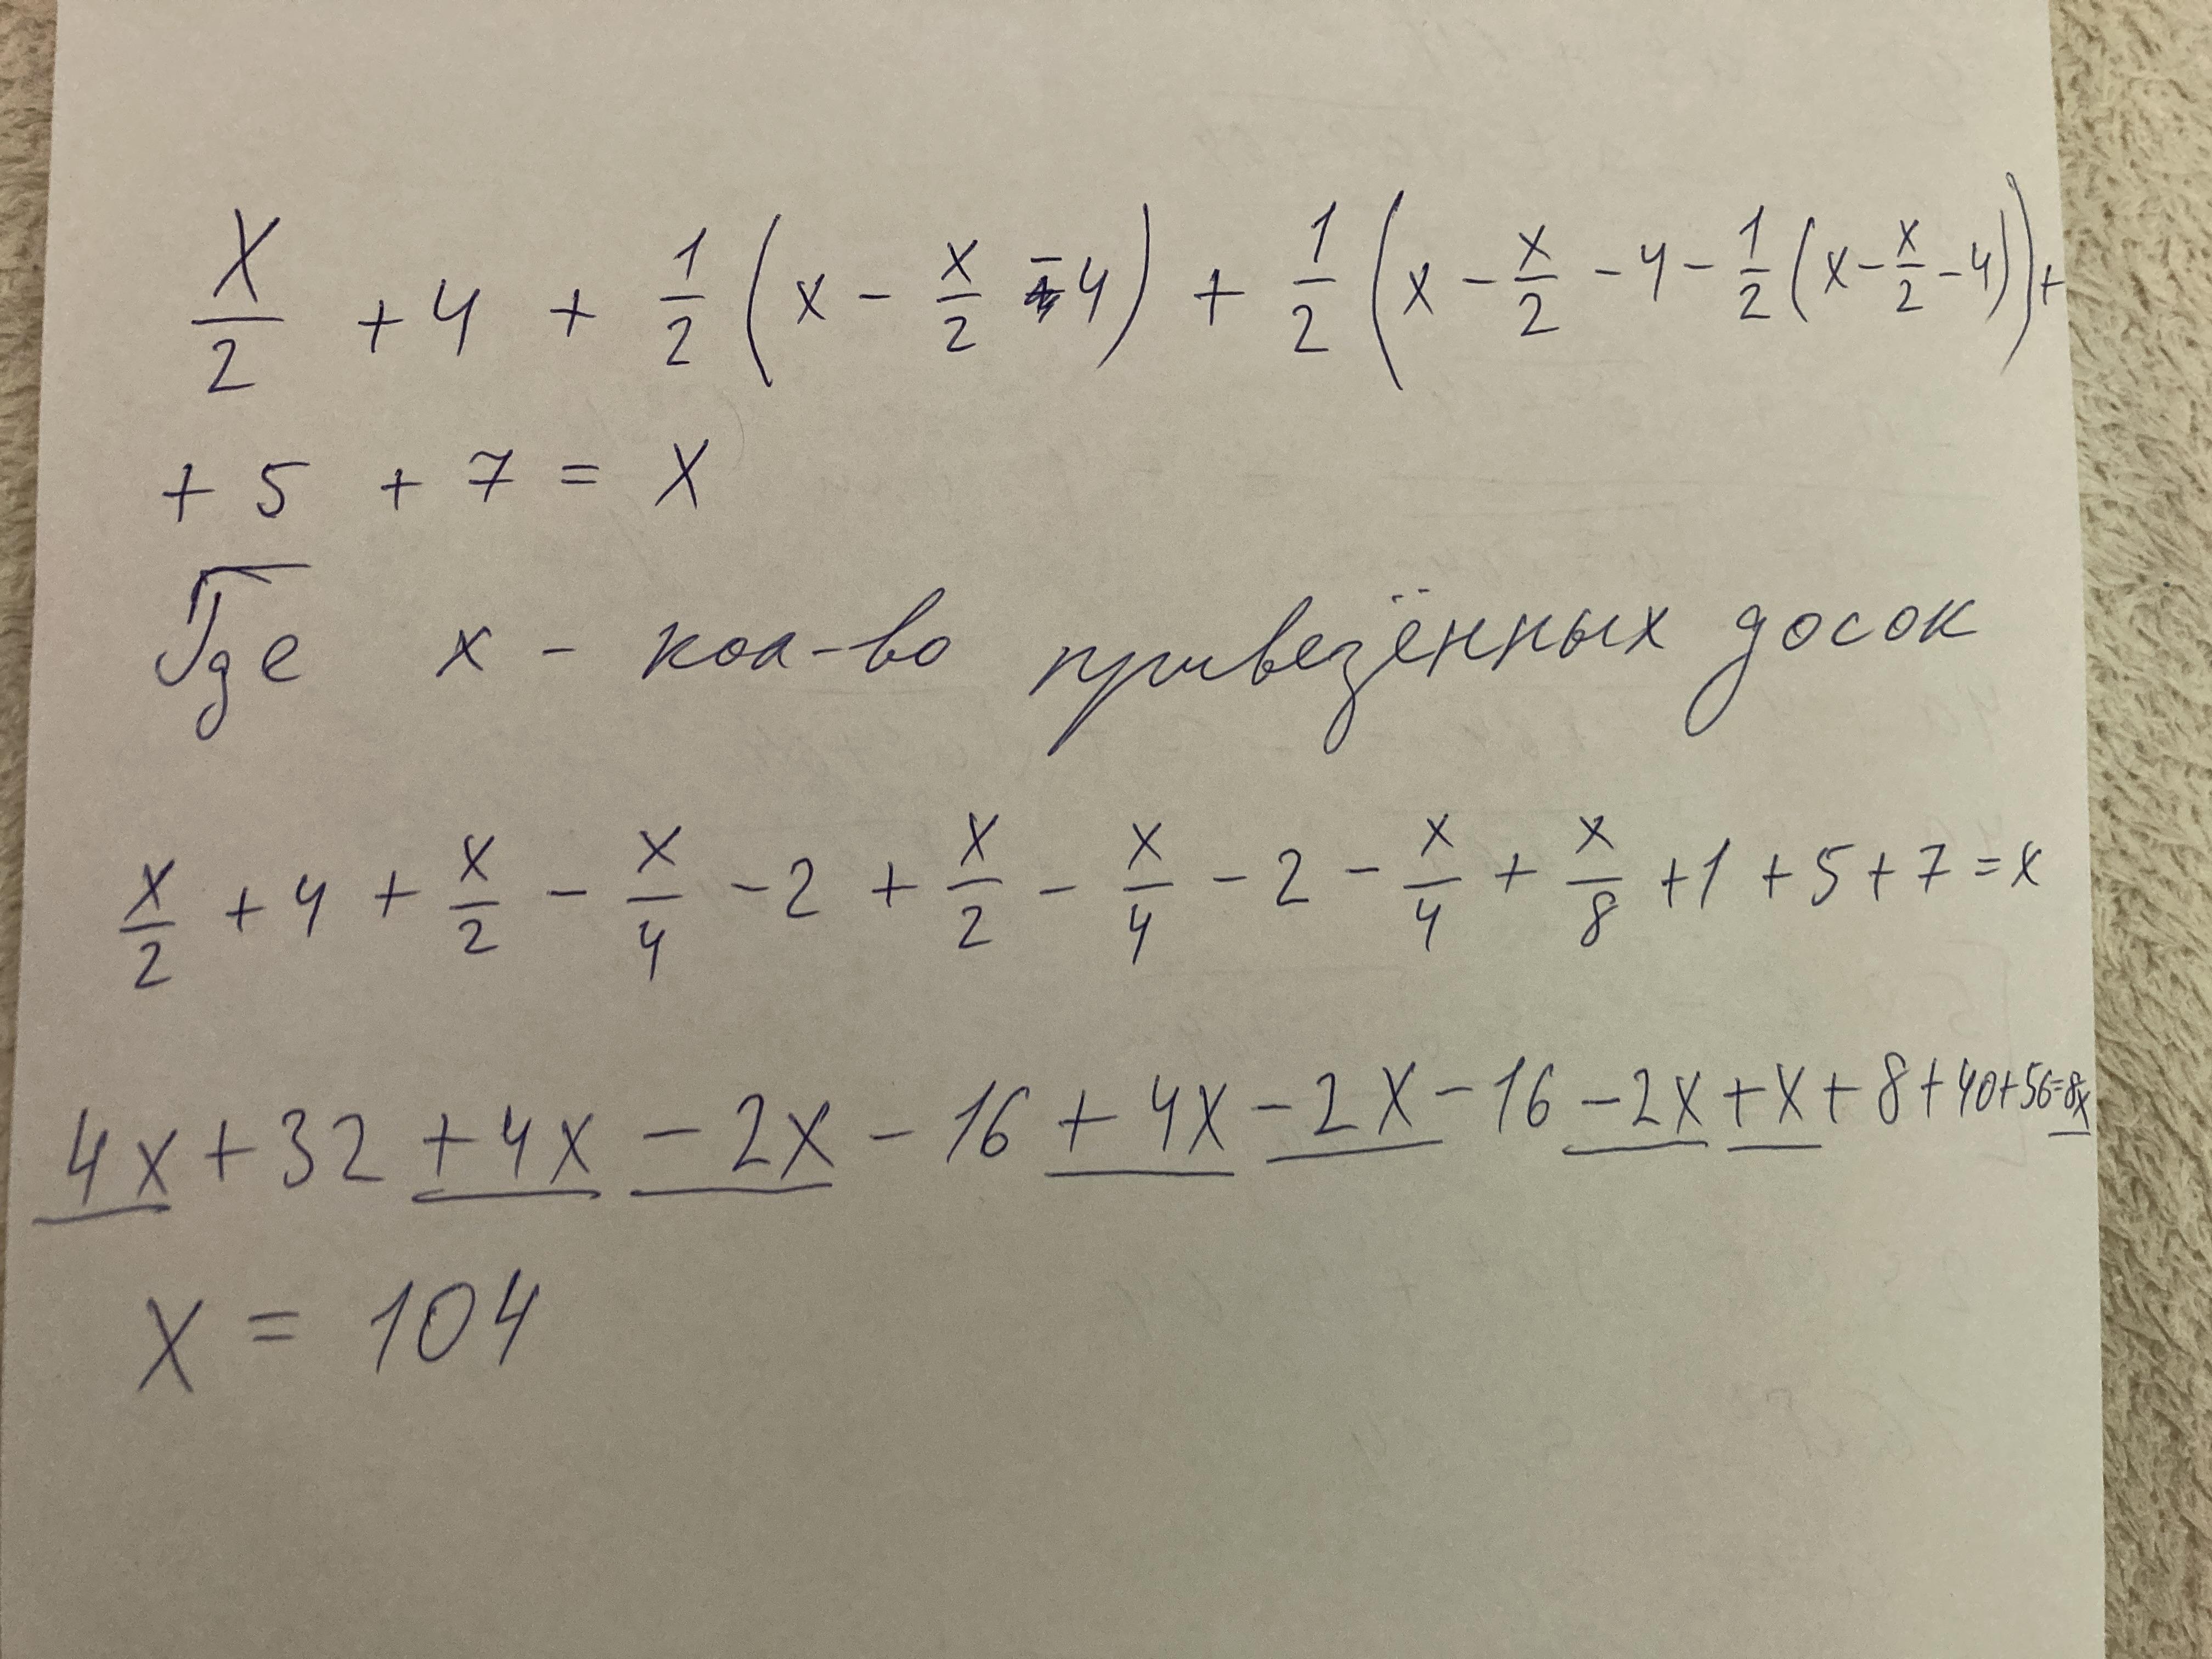 x/2 + 4 + 1/2 (x - x/2 - 4) + 1/2 (x - x/2 - 4 - 1/2 (x - x/2 - 4)) +
+ 5 + 7 = x
Где x - кол-во привезённых досок
x/2 + 4 + x/2 - x/4 - 2 + x/2 - x/4 - 2 - x/4 + x/8 + 1 + 5 + 7 = x
4x + 32 + 4x - 2x - 16 + 4x - 2x - 16 - 2x + x + 8 + 40 + 56 = 8x
x = 104